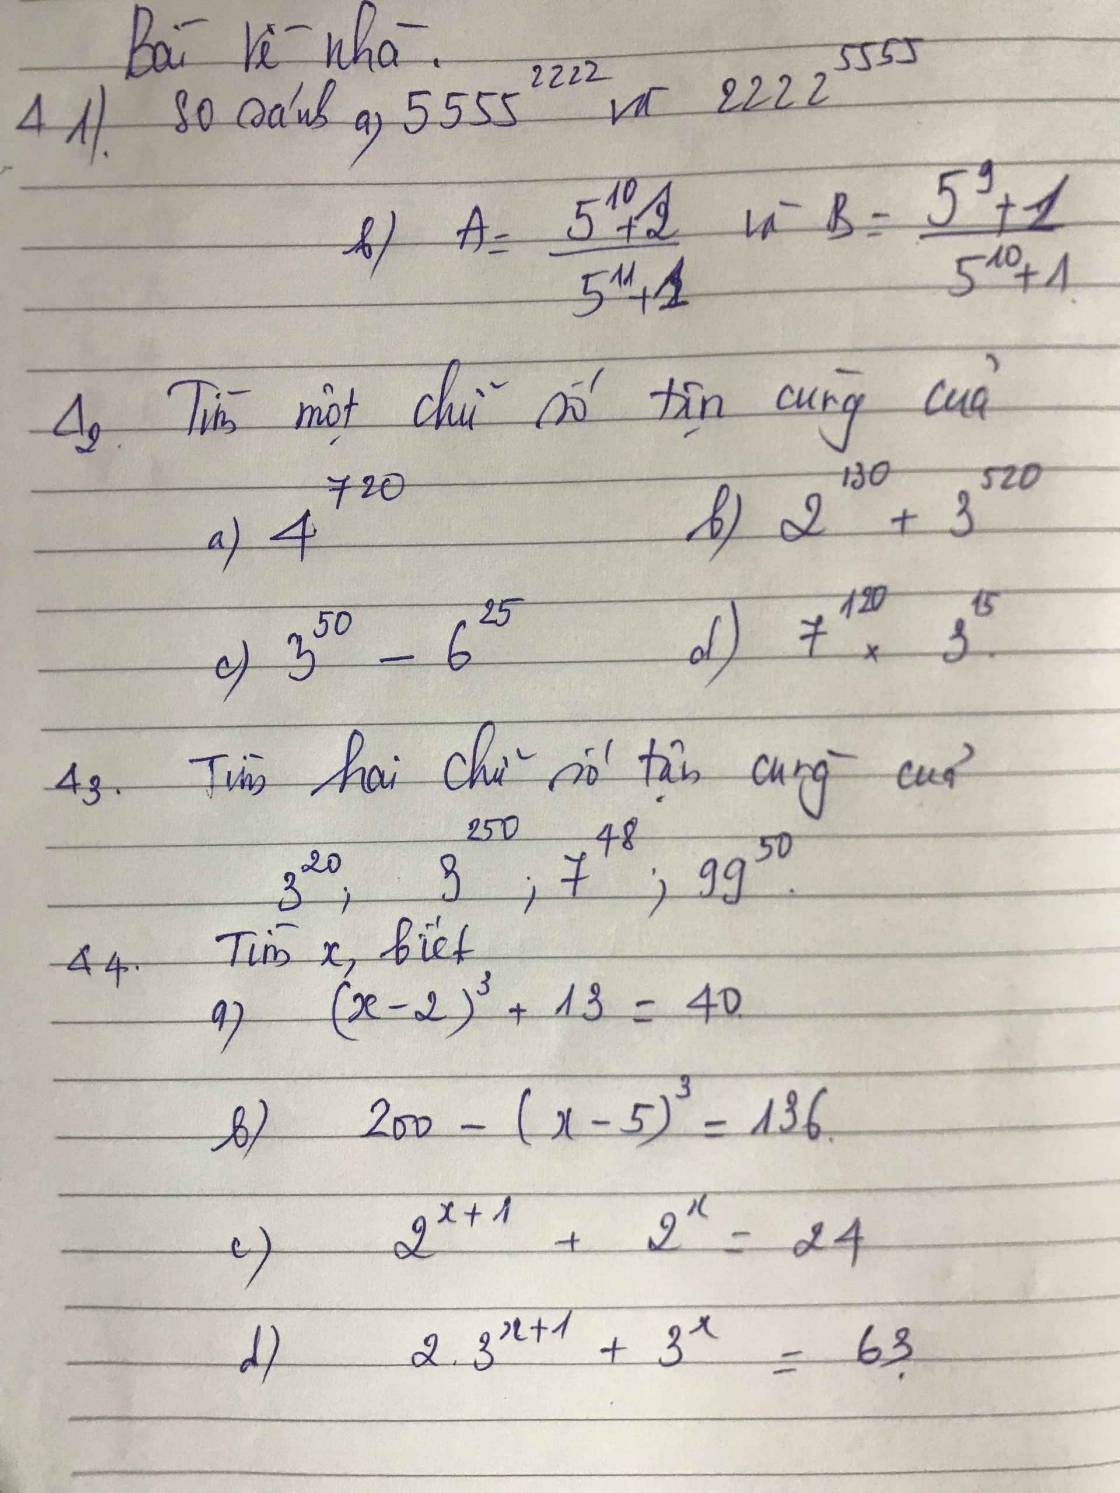 Bài về nhà.
Δ 1). So sánh a) 5555^2222 và 2222^5555
b) A = (5^10+1)/(5^11+1) và B = (5^9+1)/(5^10+1)
Δ2. Tìm một chữ số tận cùng của
a) 4^720 b) 2^130 + 3^520
c) 3^50 - 6^25 d) 7^120 × 3^15.
Δ3. Tìm hai chữ số tận cùng của
3^20; 3^250; 7^48; 99^50.
Δ4. Tìm x, biết
a) (x-2)^3 + 13 = 40.
b) 200 - (x-5)^3 = 136.
c) 2^(x+1) + 2^x = 24
d) 2.3^(x+1) + 3^x = 63.